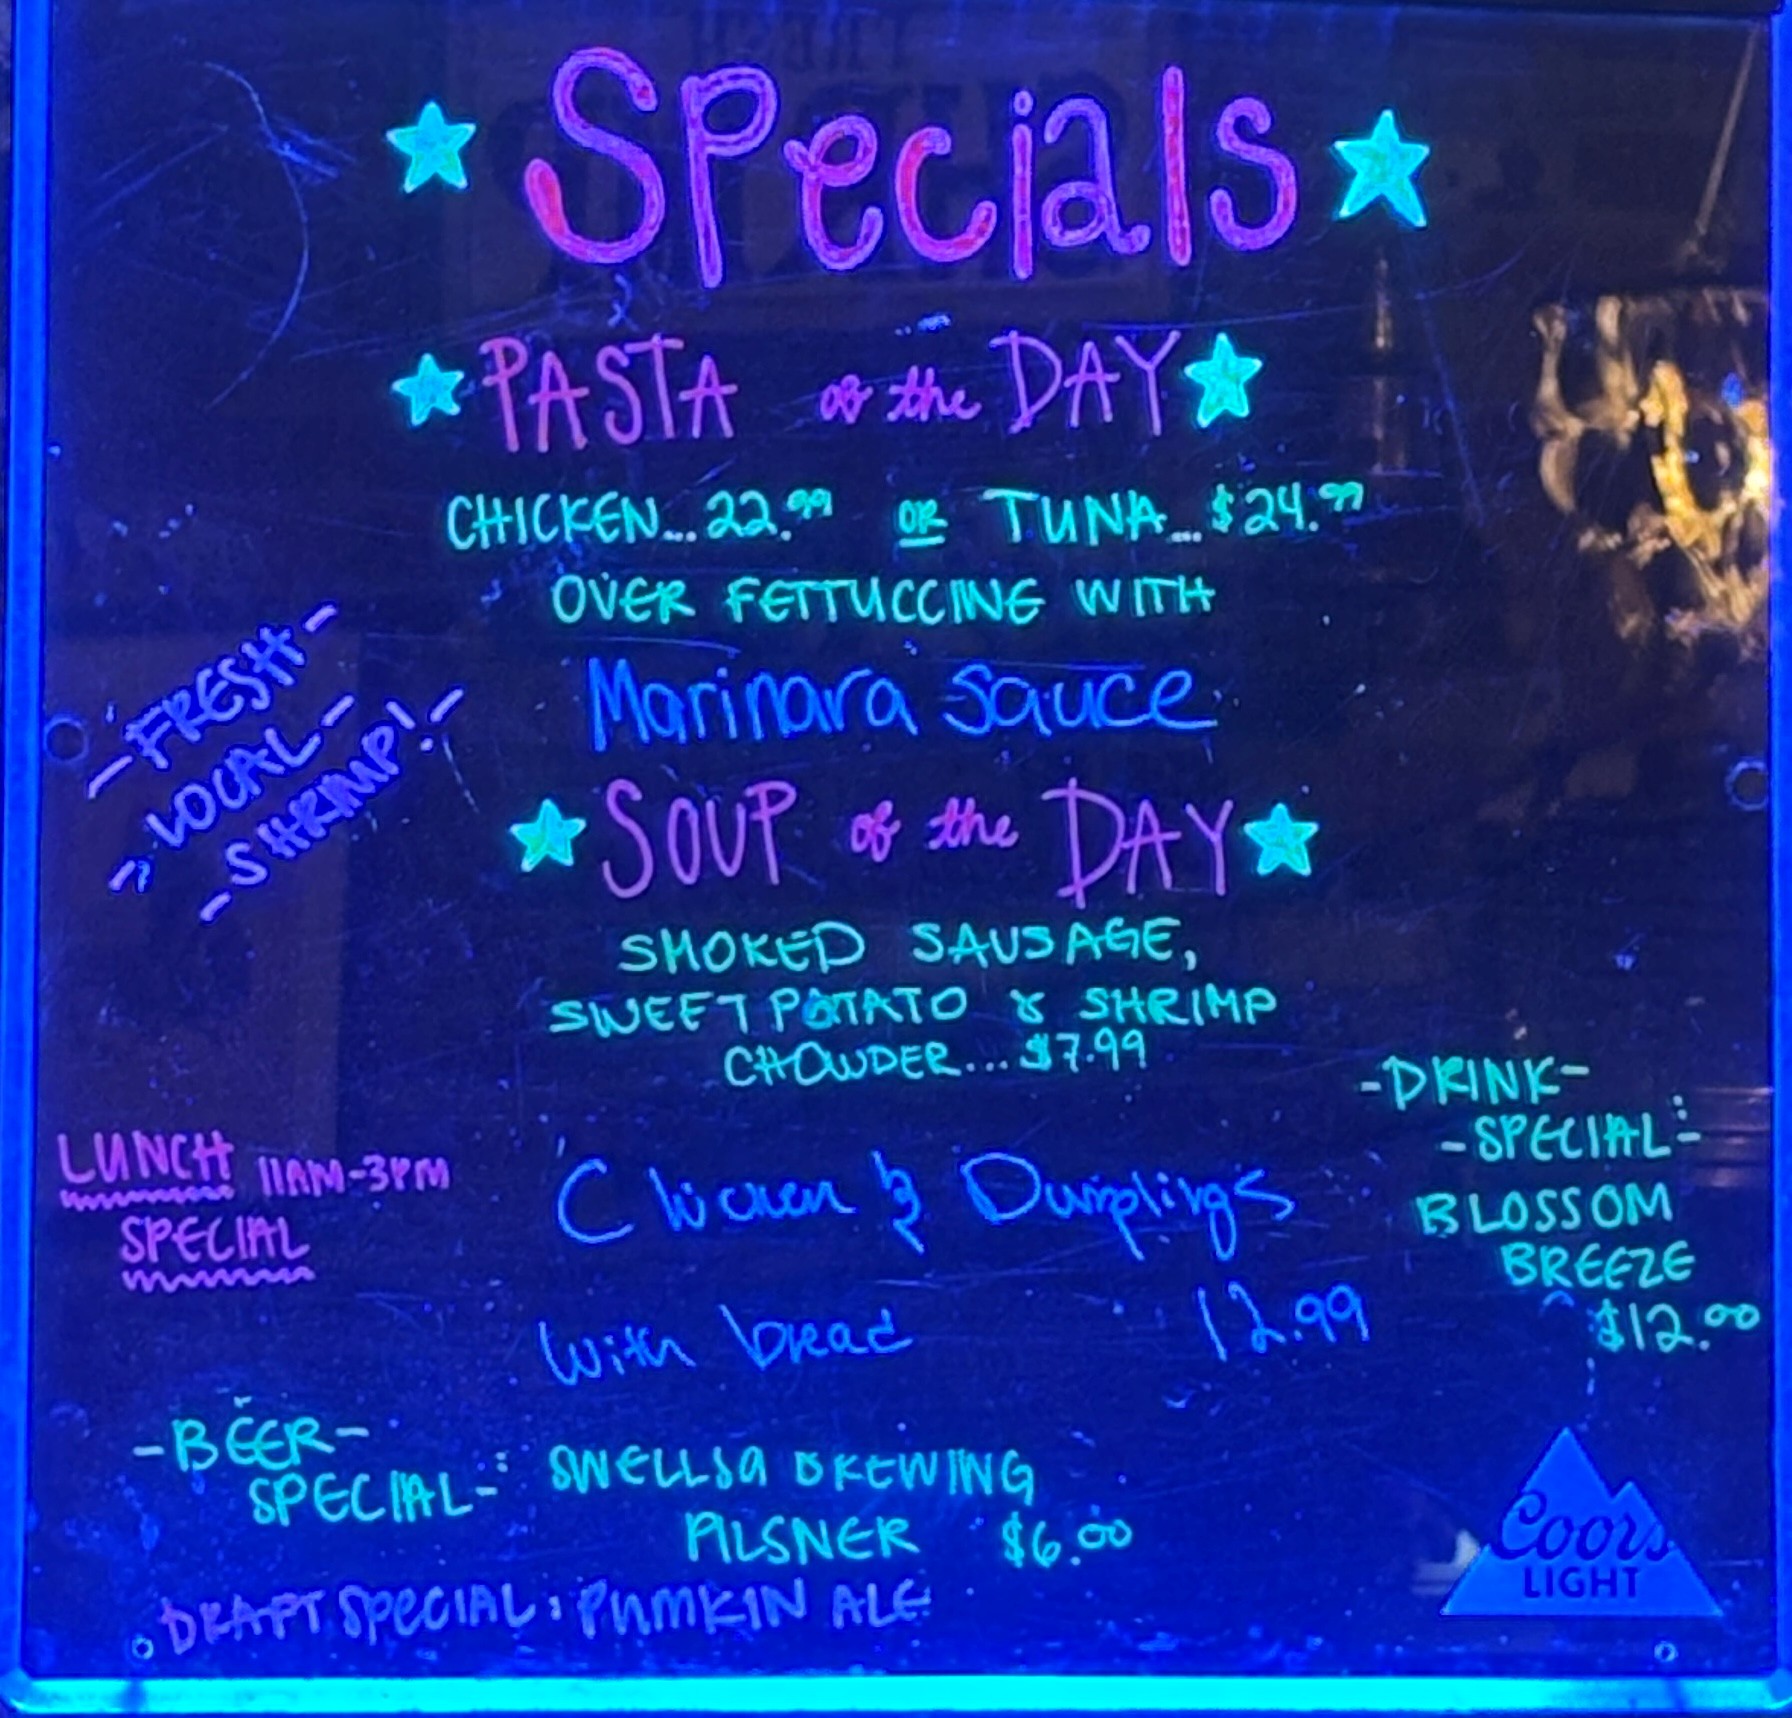 Specials
PASTA of the DAY
CHICKEN...22.99 OR TUNA...$24.99
OVER FETTUCCINE WITH
Marinara Sauce
-FRESH-
-LOCAL-
-SHRIMP!-
SOUP of the DAY
SMOKED SAUSAGE,
SWEET POTATO & SHRIMP
CHOWDER...$7.99
LUNCH 11AM-3PM
SPECIAL
Chicken & Dumplings
with bread 12.99
-DRINK-
-SPECIAL-:
BLOSSOM
BREEZE
$12.00
-BEER-
SPECIAL-: SWELLSA BREWING
PILSNER $6.00
DRAFT SPECIAL: PUMKIN ALE
Coors
LIGHT